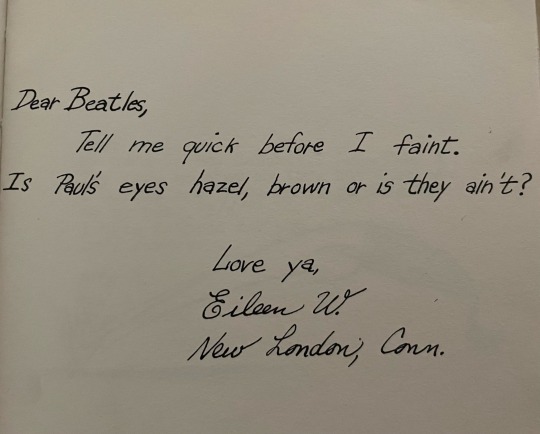 Dear Beatles,
Tell me quick before I faint.
Is Paul's eyes hazel, brown or is they ain't?
Love ya,
Eileen W.
New London, Conn.